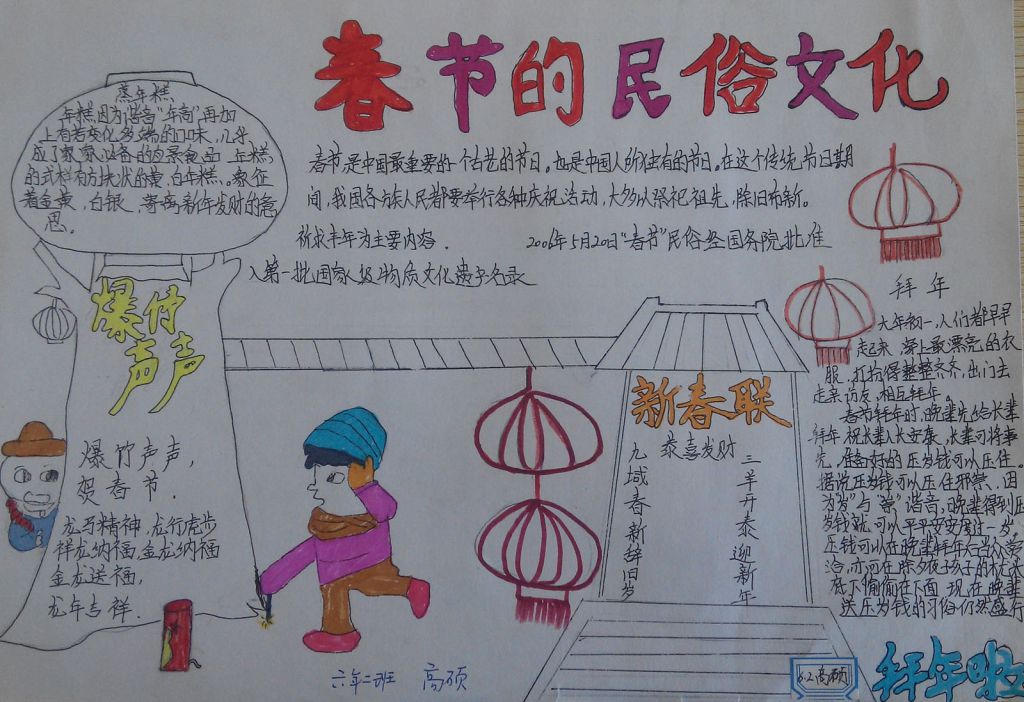 春节的民俗文化
蒸年糕
年糕因为谐音“年高”再加
上有着变化多端的口味,几乎
成了家家必备的应景食品。年糕
的式样有方块状的黄、白年糕。象征
着金黄,白银,寄寓新年发财的意
思。
春节是中国最重要的一个古艺的节日。也是中国人所独有的节日。在这个传统节日期
间,我国各族人民都要举行各种庆祝活动,大多以祭祀祖先,除旧布新。
祈求丰年为主要内容. 2006年5月20日“春节”民俗经国务院批准
入第一批国家级物质文化遗产名录
爆竹
声声
爆竹声声,
贺春节.
龙马精神,龙行虎步
祥龙纳福,金龙纳福
金龙送福,
龙年吉祥.
新春联
恭喜发财
九域春新辞旧岁
三羊开泰迎新年
拜年
大年初一,人们都早早
起来 穿上最漂亮的衣
服,打扮得整整齐齐,出门去
走亲访友,相互拜年。
春节拜年时,晚辈先给长辈
拜年 祝长辈人长安康,长辈可将事
先,准备好的压岁钱可以压住。
据说压岁钱可以压住邪祟,因
为“岁”与“祟”谐音,晚辈得到压
岁钱就可以平平安安度过一岁,
压钱可以在晚辈拜年后当众赏
给,亦可在除夕夜孩子的
底下偷偷在下面 现在晚辈
送压岁钱的习俗仍然盛行
六年二班 高硕
6.2高硕
拜年啦